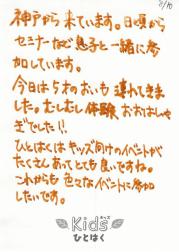 5/10
神戸から来ています。日頃から
セミナーなど息子と一緒に参
加しています。
今日は5才のおいも連れてきま
した。むしむし体験 おおはしゃ
ぎでした!!
ひとはくは キッズ向けのイベントが
たくさんあってとても良いですね。
これからも色々なイベントに参加
したいです。
Kids
キッズ
ひとはく